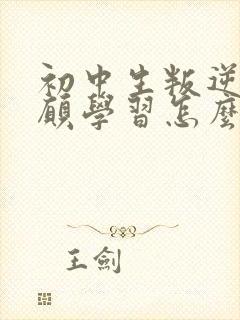 初中生叛逆
願學習怎麼
王劍